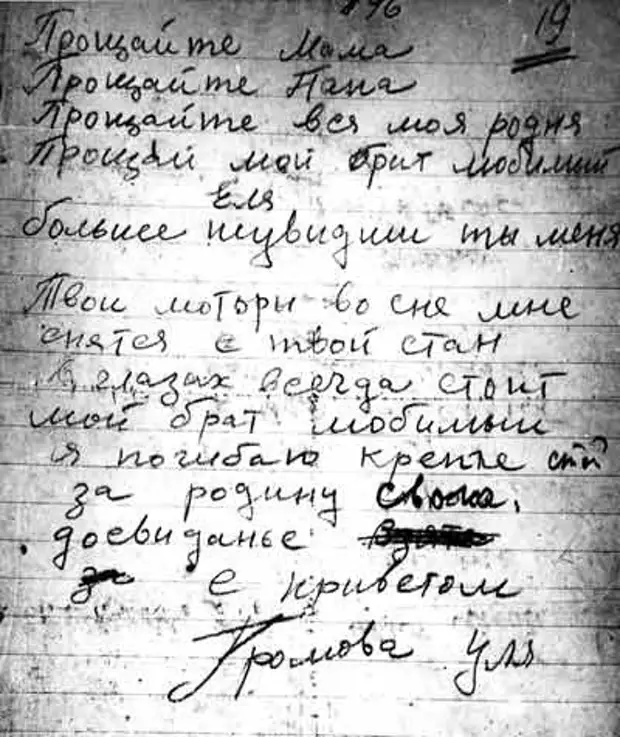 896
19
Прощайте Мама
Прощайте Папа
Прощайте вся моя родня
Прощай мой брат любимый
Еля
больше неувидиш ты меня
Твои моторы во сне мне
снятся Е твой стан
В глазах всегда стоит
мой брат любимый
я погибаю крепче стой
за родину свою.
досвиданье
за
С приветом
Громова Уля